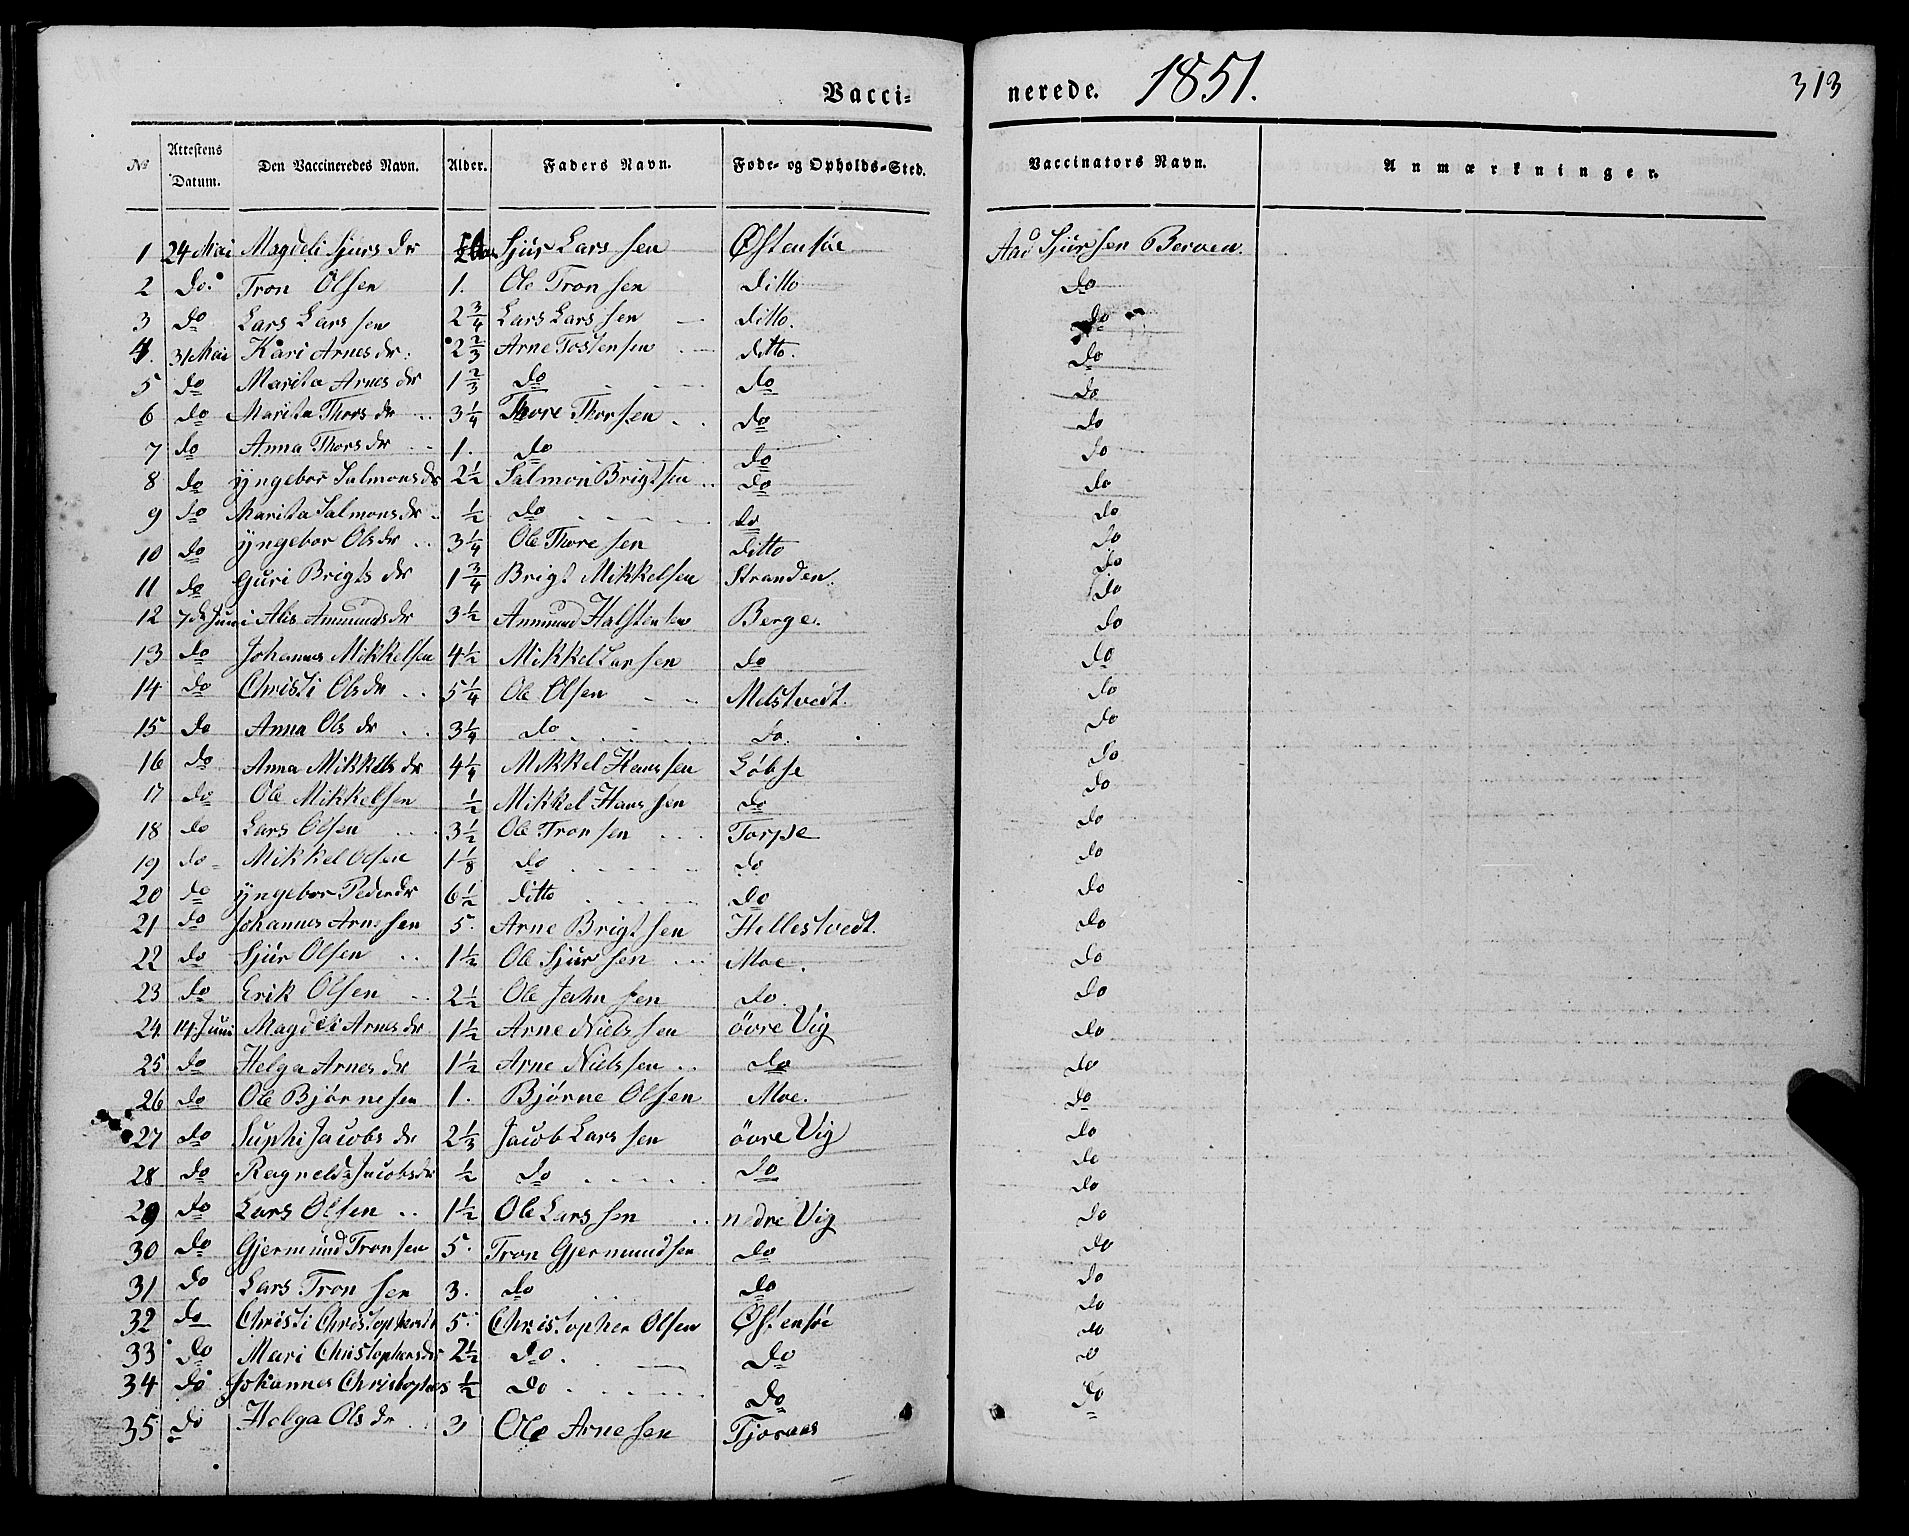 Vacci- nerede. 1851. 313
No Attestens Datum. Den Vaccineredes Navn. Alder. Faders Navn. Føde- og Opholds-Sted. Vaccinators Navn. Anmærkninger.
1 24 Mai Magdeli Sjursdr Sjur Larssen Østensøe Aad Sjursen Berven.
2 do. Tron Olsen 1. Ole Tronsen ditto do
3 do Lars Larssen 2 3/4 Lars Larssen ditto. do
4. 31 Mai Kari Arnesdr. 2 2/3 Arne Tostensen ditto. do
5 do Marita Arnesdr 1 2/3 do do do
6 do Marita Thorsdr 3 1/4 Thore Thorsen do do
7 do Anna Thorsdr 1. do do do
8 do Yngebor Salmonsdr 2 1/2 Salmon Brigtsen do do
9 do Marita Salmonsdr 1/2 do do do
10 do Yngebor Olsdr 3 1/4 Ole Thoresen ditto do
11 do Guri Brigtsdr 1 3/4 Brigt Mikkelsen Stranden. do
12 7de Juni Alis Amundsdr 3 1/2 Ammund Halstensen Berge. do
13 do Johannes Mikkelsen 4 1/2 Mikkel Larsen do do
14 do Christi Olsdr 5 1/4 Ole Olsen Melstvedt. do
15 do Anna Olsdr 3 1/4 do do. do
16 do Anna Mikkelsdr 4 1/4 Mikkel Hanssen Løbse do
17 do Ole Mikkelsen 1/2 Mikkel Hanssen do do
18 do Lars Olsen 3 1/2 Ole Tronsen Torpe do
19 do Mikkel Olsen 1 1/8 do do do
20 do Yngebor Pedersdr 6 1/2 ditto do do
21 do Johannes Arnesen 5. Arne Brigtsen Hellestvedt. do
22 do Sjur Olsen 1 1/2 Ole Sjursen Moe. do
23 do Erik Olsen 2 1/2 Ole Jahnsen do. do
24 14 Juni Magdeli Arnesdr 1 1/2 Arne Nielssen øvre Vig do
25 do Helga Arnesdr 1 1/2 Arne Nielssen do do
26 do Ole Bjørnesen 1. Bjørne Olsen Moe. do
27 do Suphi Jacobsdr 2 1/3 Jacob Larssen øvre Vig do
28 do Ragnelda Jacobsdr 1/2 do do do
29 do Lars Olsen 1 1/2 Ole Larssen nedre Vig do
30 do Gjermund Tronsen 5. Tron Gjermundsen do do
31 do Lars Tronsen 3. do do do
32 do Christi Christophersdr 5. Christopher Olsen Østensøe do
33 do Mari Christophersdr 2 1/2 do. do do
34 do Johannes Christophers 1/2 do do do
35 do Helga Olsdr 3 Ole Arnesen Tjoraas do